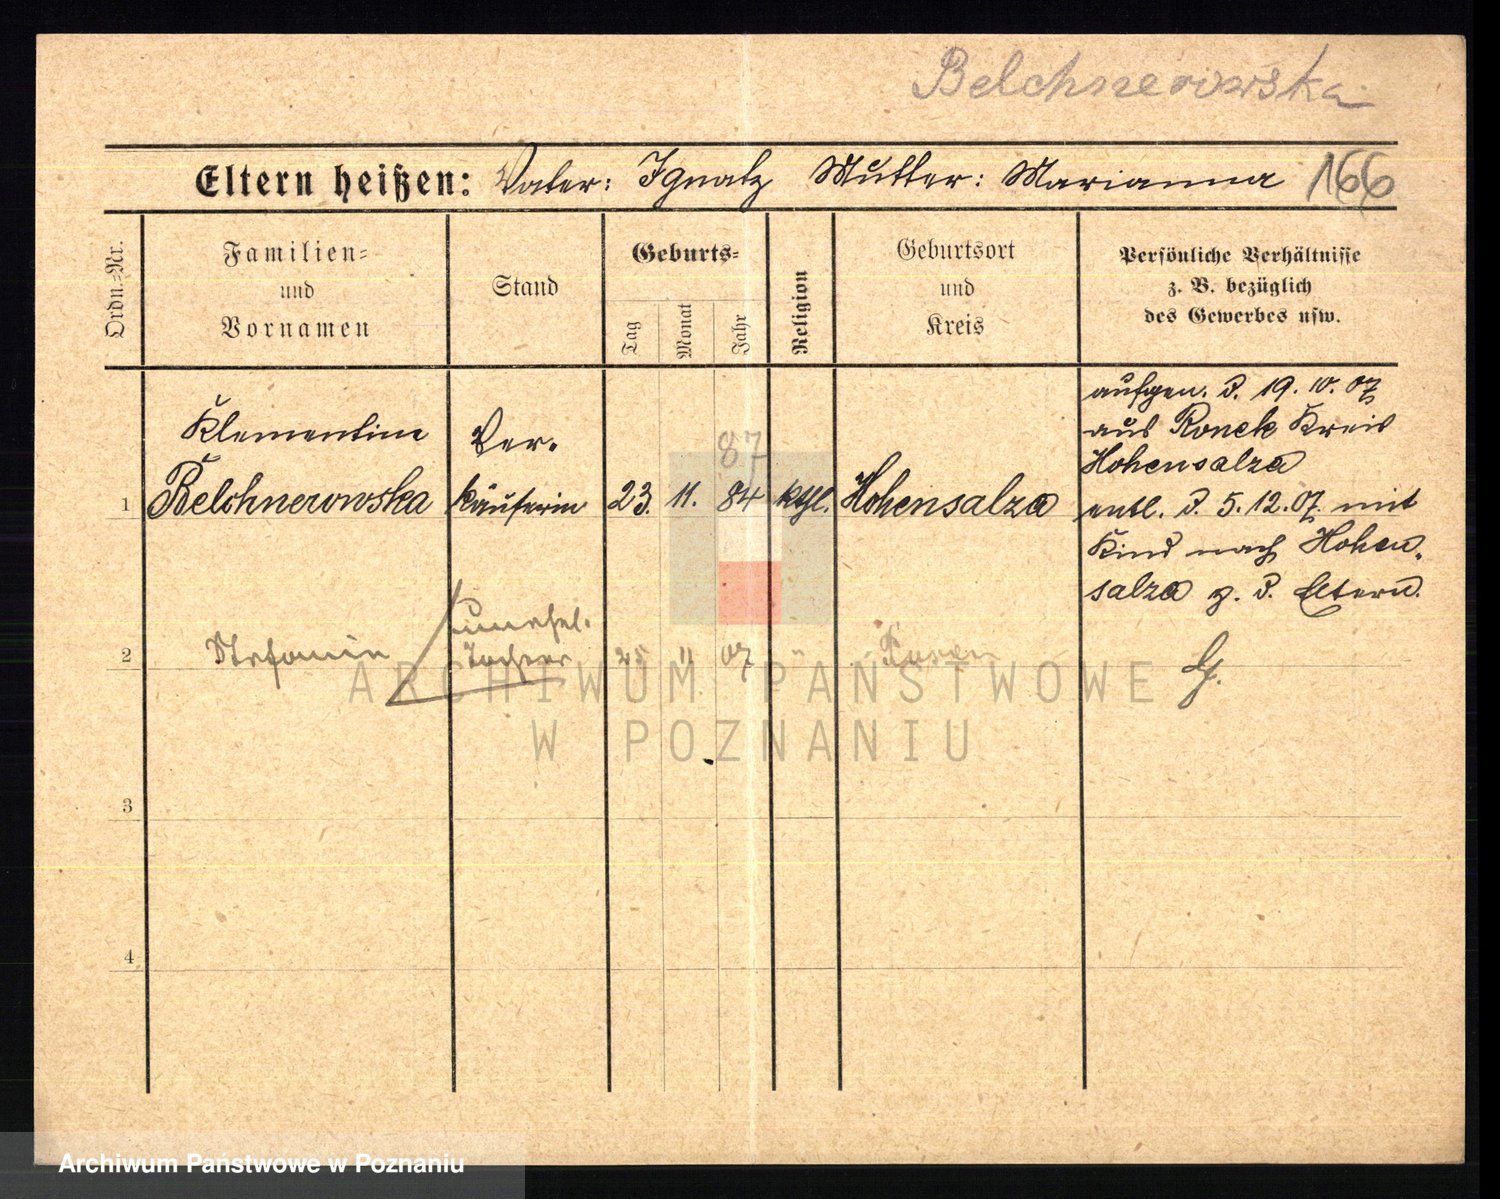 Belchnerowska
Eltern heißen: Vater: Ignatz Mutter: Marianna 166
Ordn.-Nr.
Familien-
und
Vornamen
Stand
Geburts-
Tag
Monat
Jahr
Religion
Geburtsort
und
Kreis
Persönliche Verhältnisse
z. B. bezüglich
des Gewerbes usw.
1
Klementine
Belchnerowska
Ver-
käuferin
23. 11. 84
87
kthl.
Hohensalza
aufgen. d. 19. 10. 07
aus Ronek Kreis
Hohensalza
entl. d. 5. 12. 07. mit
Kind nach Hohen-
salza z. d. Eltern.
G.
2
unehel.
Tochter
25 11 07 "
Posen
3
4
ARCHIWUM PAŃSTWOWE
W POZNANIU
Archiwum Państwowe w Poznaniu